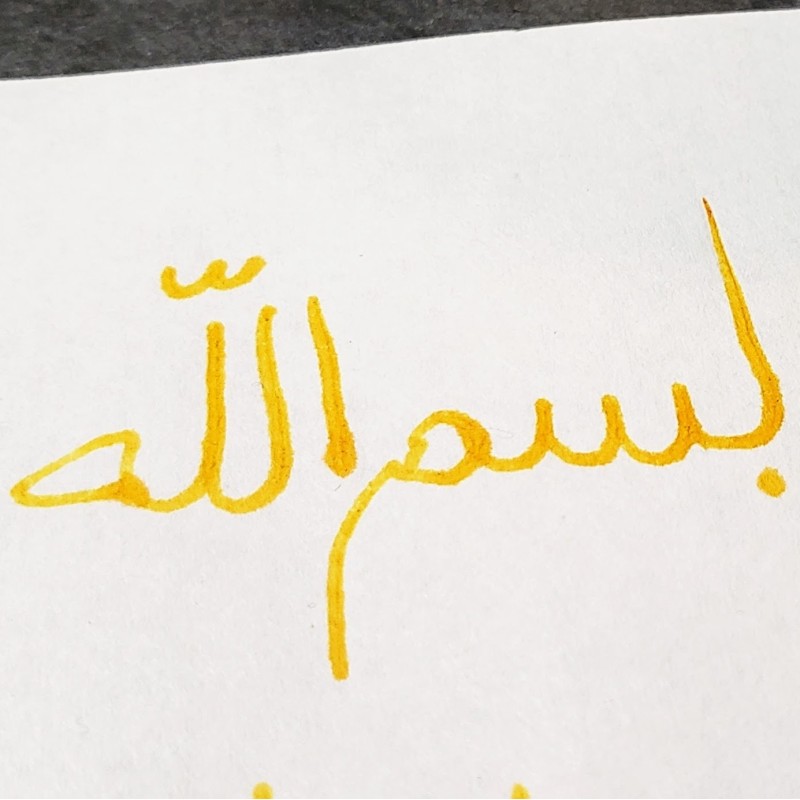 بسم اللّه